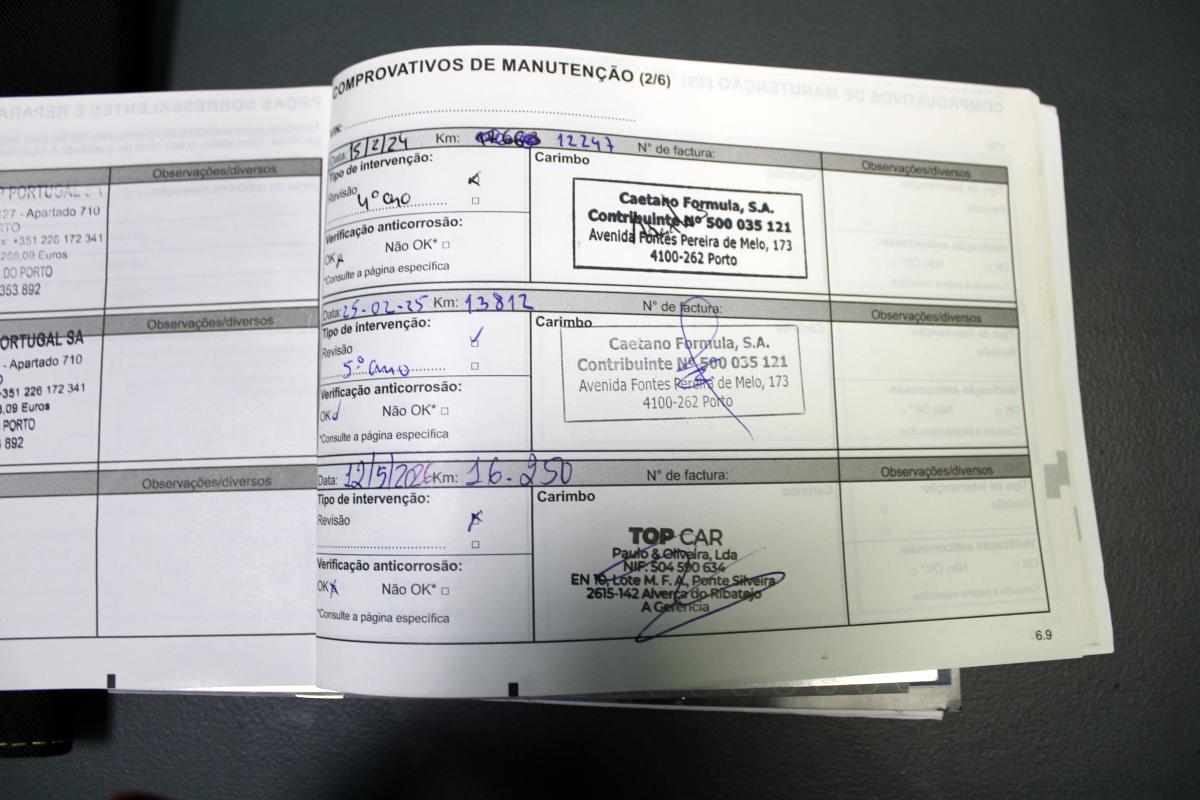 PORTUGAL
27 - Apartado 710
+351 226 172 341
Euros
DO PORTO
353 892
Observações/diversos
ORTUGAL SA
- Apartado 710
351 226 172 341
8.09 Euros
PORTO
892
Observações/diversos
Observações/diversos
COMPROVATIVOS DE MANUTENÇÃO (2/6)
Data: 15/2/24 Km: 12247 N° de factura: Observações/diversos
Tipo de intervenção:
Revisão
4º ano
Verificação anticorrosão:
OK Não OK*
*Consulte a página específica
Carimbo
Caetano Formula, S.A.
Contribuinte Nº 500 035 121
Avenida Fontes Pereira de Melo, 173
4100-262 Porto
Data: 25-02-25 Km: 13812 N° de factura: Observações/diversos
Tipo de intervenção:
Revisão
5º ano
Verificação anticorrosão:
OK Não OK*
*Consulte a página específica
Carimbo
Caetano Formula, S.A.
Contribuinte Nº 500 035 121
Avenida Fontes Pereira de Melo, 173
4100-262 Porto
Data: 12/5/2026 Km: 16.250 N° de factura: Observações/diversos
Tipo de intervenção:
Revisão
Verificação anticorrosão:
OK Não OK*
*Consulte a página específica
Carimbo
TOP CAR
Paulo & Oliveira, Lda
NIF: 504 590 634
EN 10, Lote M. F. A, Ponte Silveira
2615-142 Alverca do Ribatejo
A Gerência
6.9